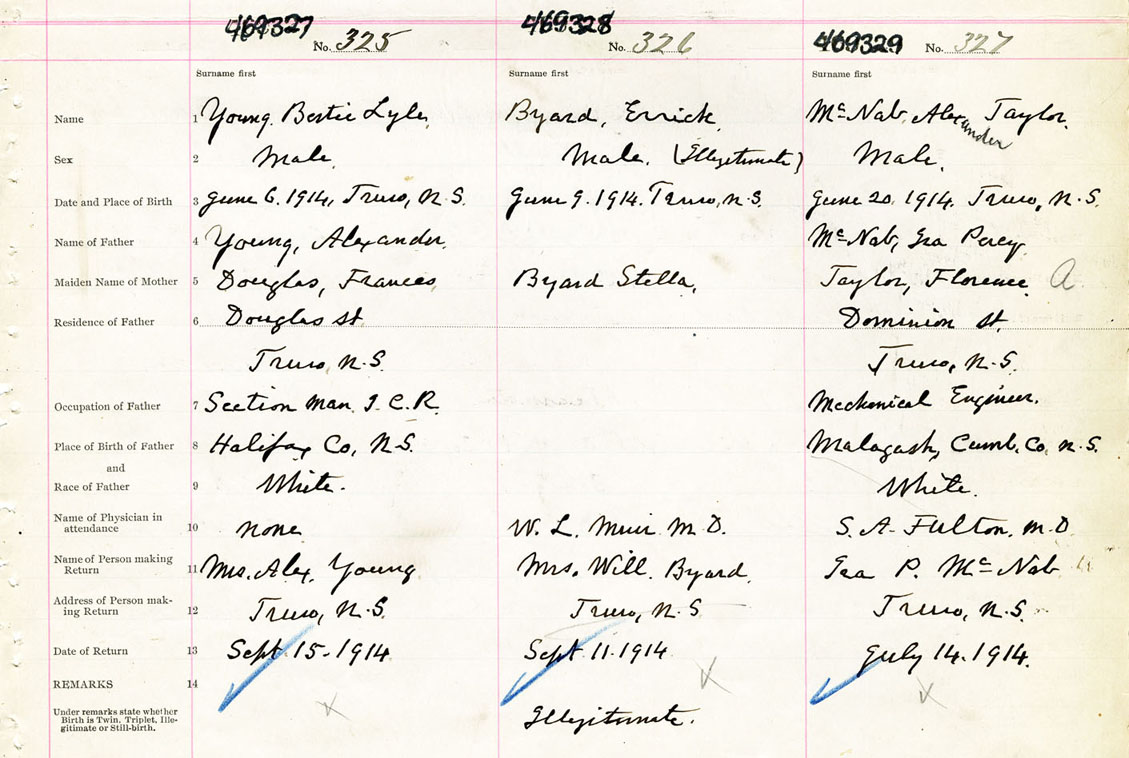 469327 469328 469329
No. 325 No. 326 No. 327
Surname first Surname first Surname first
Name 1 Young Bertie Lyle, Byard, Errick, McNab, Alexander Taylor.
Sex 2 Male, Male. (Illegitimate) Male.
Date and Place of Birth 3 June 6. 1914, Truro, N.S. June 9. 1914. Truro, N.S. June 20, 1914. Truro, N.S.
Name of Father 4 Young, Alexander, McNab, Ira Percy.
Maiden Name of Mother 5 Douglas, Frances, Byard Stella, Taylor, Florence A
Residence of Father 6 Douglas St Dominion St.
Truro, N.S. Truro, N.S.
Occupation of Father 7 Section Man I.C.R. Mechanical Engineer.
Place of Birth of Father 8 Halifax Co, N.S. Malagash, Cumb. Co, N.S.
and
Race of Father 9 White. White.
Name of Physician in
attendance 10 none W. L. Muir M.D. S. A. Fulton, M.D
Name of Person making
Return 11 Mrs. Alex. Young Mrs. Will. Byard, Ira P. McNab
Address of Person mak-
ing Return 12 Truro, N.S. Truro, N.S Truro, N.S.
Date of Return 13 Sept. 15. 1914 Sept 11. 1914 July 14. 1914.
REMARKS 14
Under remarks state whether
Birth is Twin, Triplet, Ille-
gitimate or Still-birth.
Illegitimate.